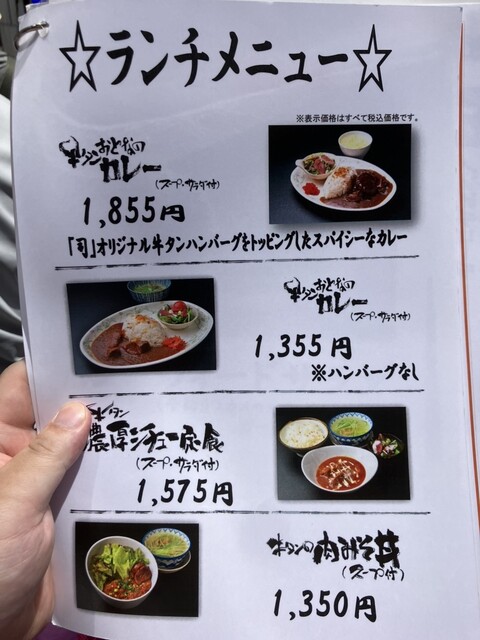 ☆ランチメニュー☆
※表示価格はすべて税込価格です。
牛タンおとなの
カレー
(スープ・サラダ付)
1,855円
「司」オリジナル牛タンハンバーグをトッピングしたスパイシーなカレー
牛タンおとなの
カレー
(スープ・サラダ付)
1,355円
※ハンバーグなし
牛タン
濃厚シチュー定食
(スープ・サラダ付)
1,575円
牛タンの肉みそ丼
(スープ付)
1,350円